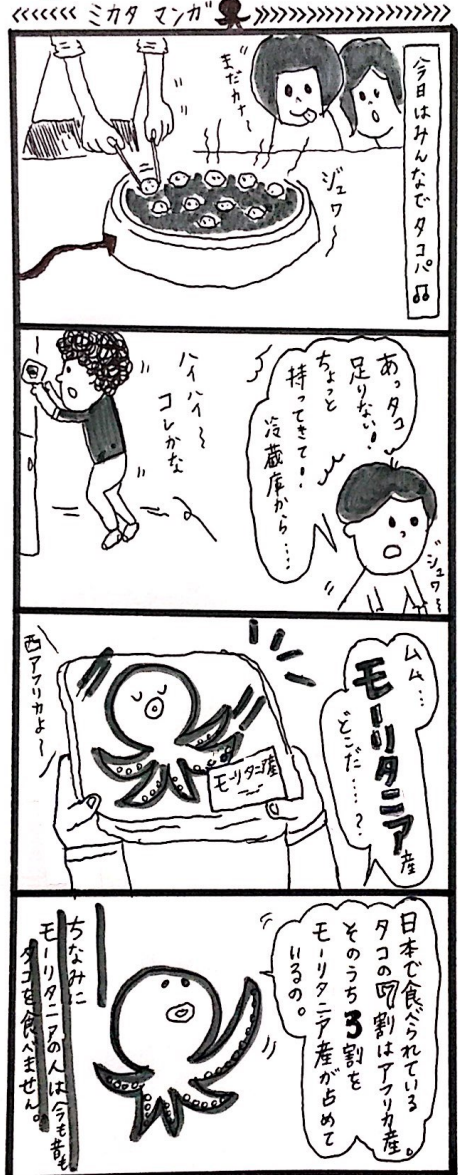 ミカタ マンガ
今日はみんなでタコパ♫
まだカナ〜
ジュワ〜
あっタコ
足りない!
ちょっと
持ってきて!
冷蔵庫から…
ジュワ〜
ハイハイ〜
コレかな
ムム…
モーリタニア産
どこだ…?
モーリタニア産
西アフリカよ〜
日本で食べられている
タコの7割はアフリカ産。
そのうち3割を
モーリタニア産が占めて
いるの。
ちなみに
モーリタニアの人は今も昔も
タコを食べません。